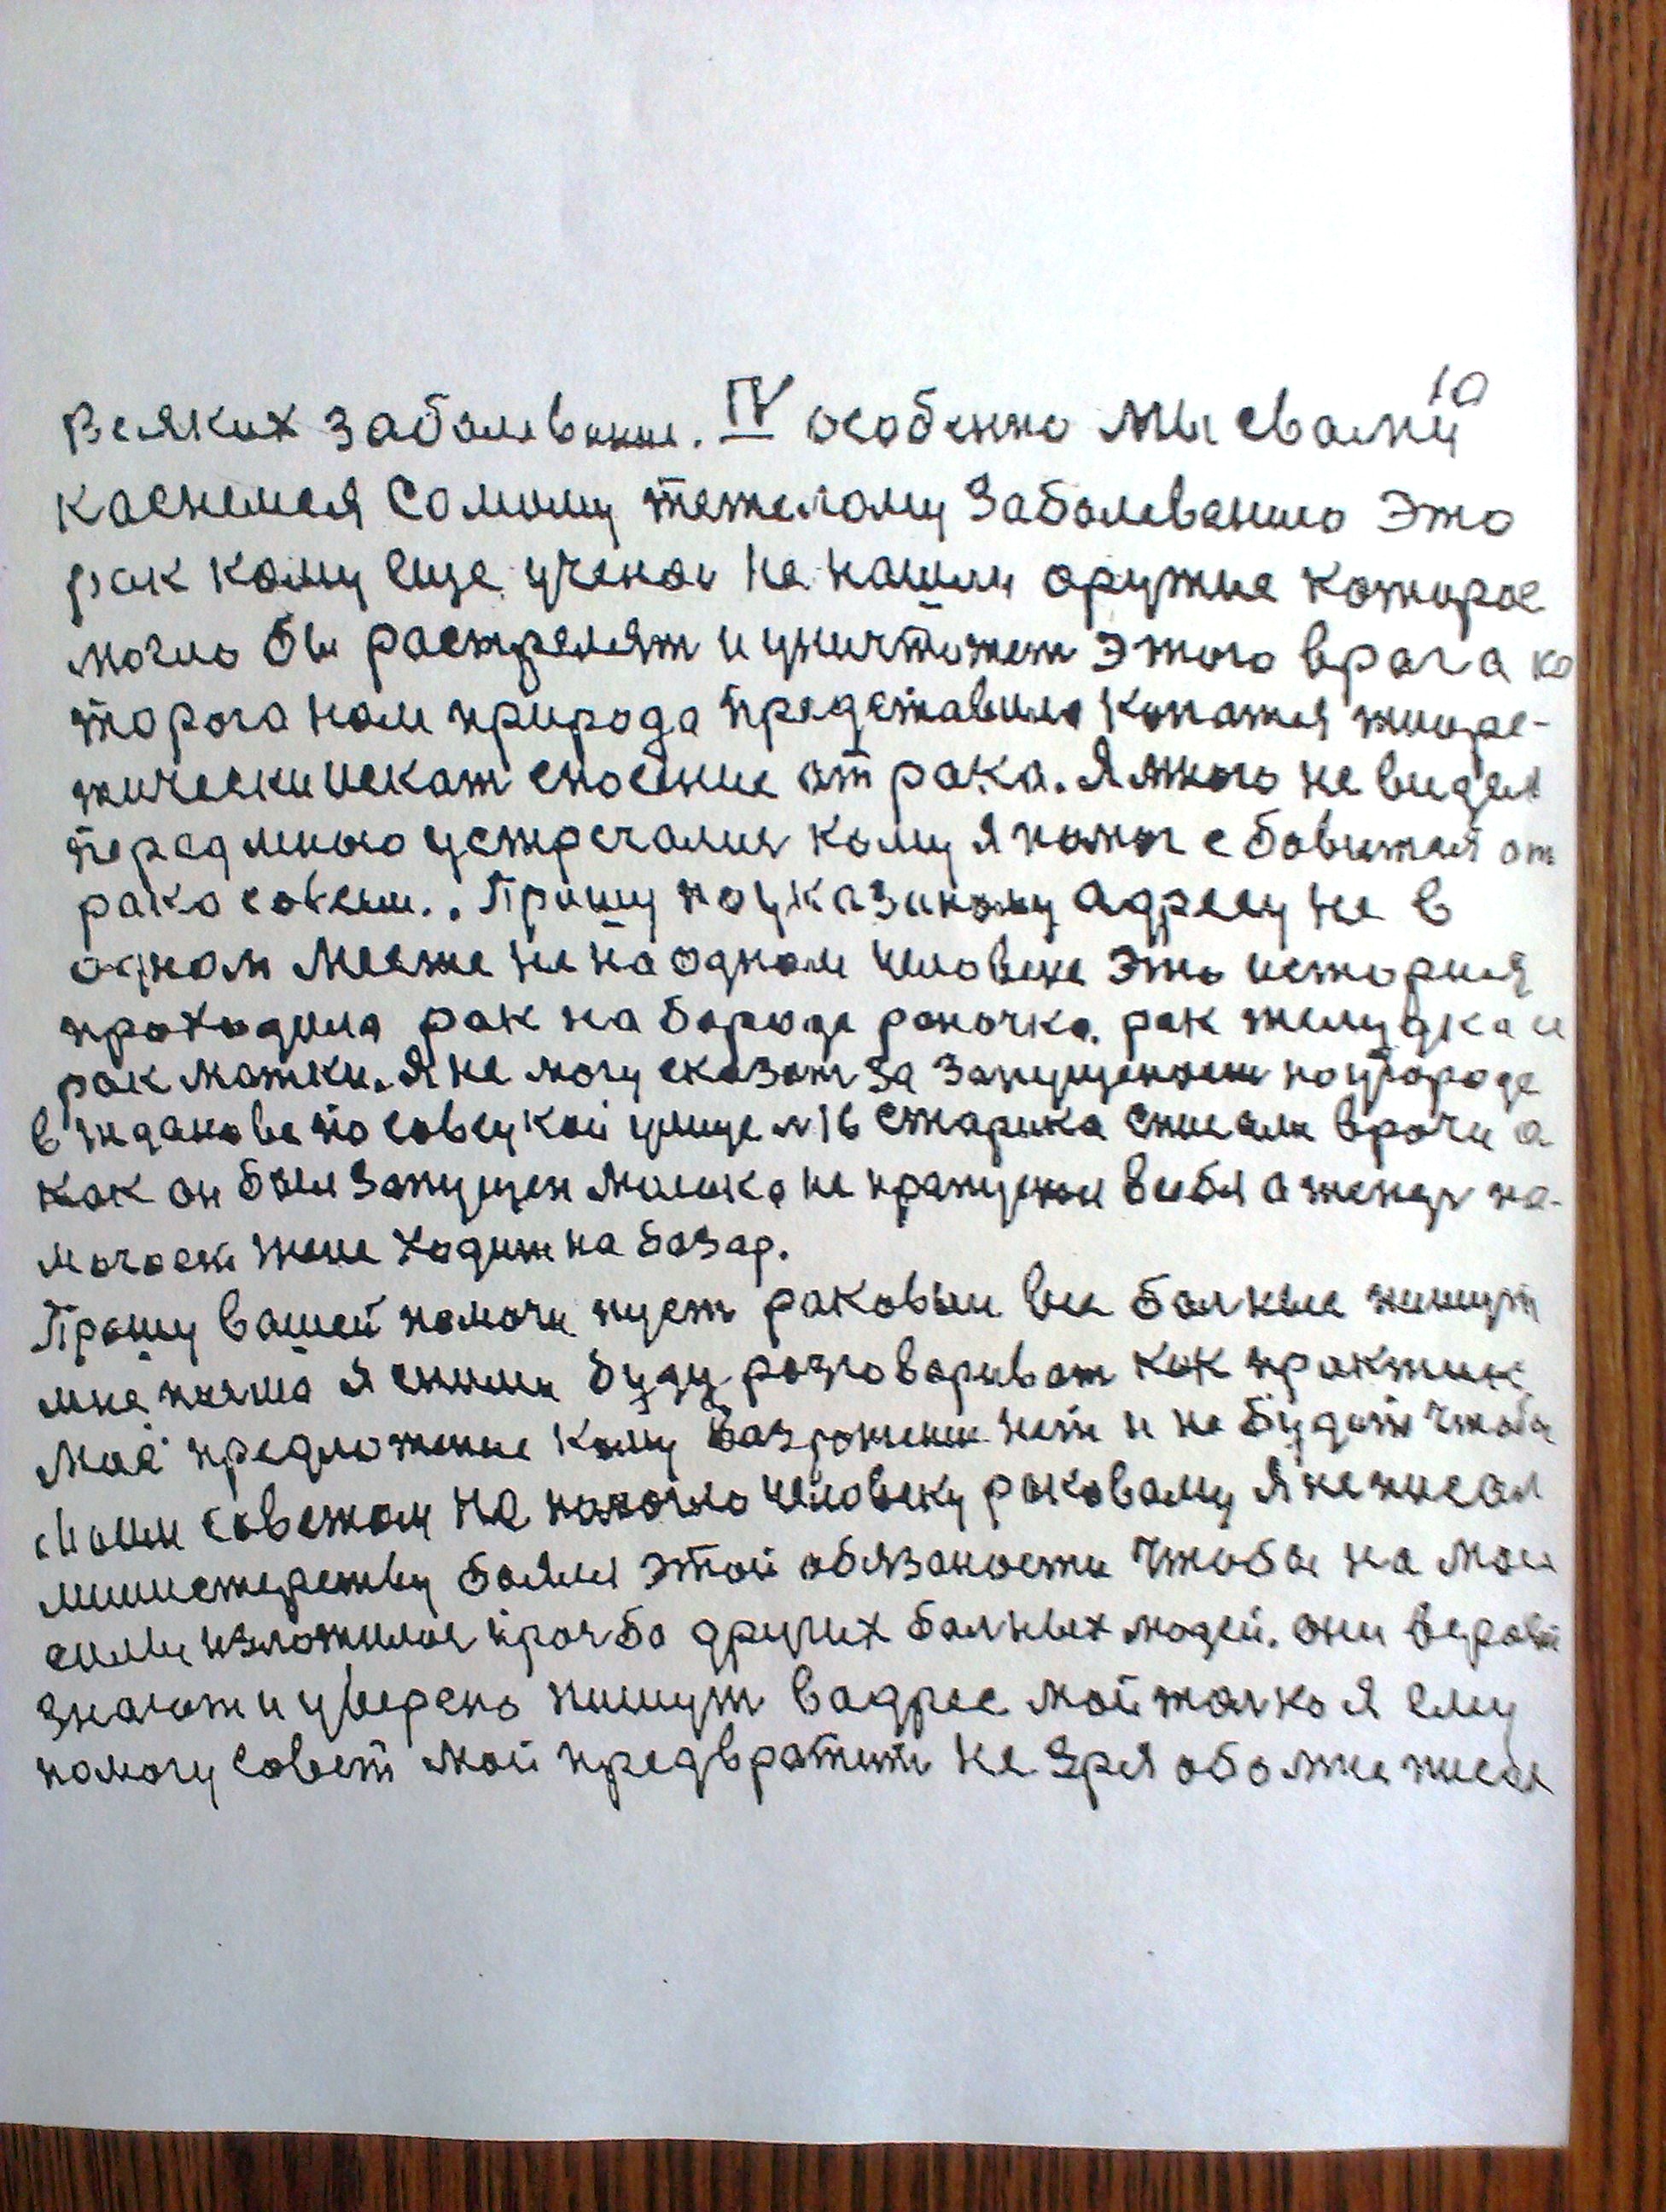 10
Всяких заболевание. IV особенно мы свами
коснемся самому тежелому заболеванию это
рак кому еще ученои не нашли оружие которое
могло бы растрелят и уничтожет этого врага ко
торого нам природа представила копатся тиоре-
тически искат спосение от рака. Я много не видел
передмною устречалис кому я помог сбавится от
рака совсем.. Прошу поуказаному адресу не в
одном месте не на одном человеке это история
проходила рак на бороде раночка. рак желудка и
рак матки. Я не могу сказат за запущеном погороде
в жданове по совецкой улице N 16 старика списали врочи а
как он был запущен молока не пропускал всебя а тепер по-
могает жене ходит на базар.
Прошу вашей помочи пуст раковыи все болные пишут
мне писма я сними буду розговариват как практик
моё предложение кому возрожении нет и не будит чтобы
моим советом не помогло человеку раковаму я не писал
министерству боялся этой обязаности чтобы на мои
силы изложилос прозба других болных людей. они
знают и уверено пишут вадрес мой толко я ему
помогу совет мой предвратит не зря обо мне